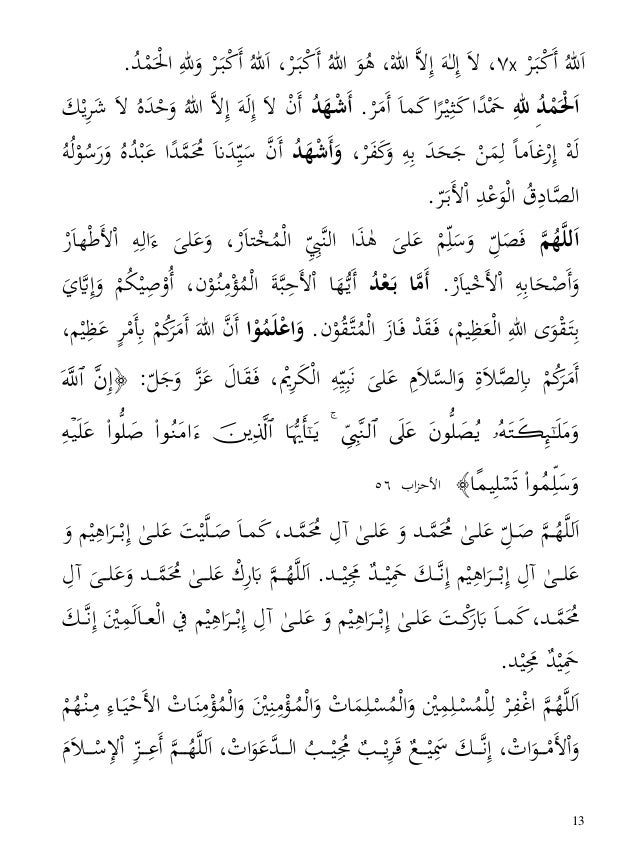 اَللهُ أَكْبَرْ ٧x، لاَ إِلٰهَ إِلاَّ اللهُ، هُوَ اللهُ أَكْبَرْ، اَللهُ أَكْبَرْ وَلِلهِ الْحَمْدُ.
اَلْحَمْدُ لِلهِ حَمْدًا كَثِيْرًا كَمَا أَمَرْ. أَشْهَدُ أَنْ لاَ إِلَهَ إِلاَّ اللهُ وَحْدَهُ لاَ شَرِيْكَ
لَهْ إِرْغاَماً لِمَنْ جَحَدَ بِهِ وَكَفَرْ، وَأَشْهَدُ أَنَّ سَيِّدَناَ مُحَمَّدًا عَبْدُهُ وَرَسُوْلُهُ
الصَّادِقُ الْوَعْدِ ٱلأَبَرّْ.
اَللَّهُمَّ فَصَلِّ وَسَلِّمْ عَلىَ هٰذَا النَّبِيِّ الْمُخْتاَرْ، وَعَلىَ ءَالِهِ ٱلأَطْهاَرْ
وَأَصْحَابِهِ ٱلأَخْياَرْ. أَمَّا بَعْدُ أَيُّهَا ٱلأَحِبَّةَ الْمُؤْمِنُوْن، أُوْصِيْكُمْ وَإِيَّايَ
بِتَقْوَى اللهِ الْعَظِيْمِ، فَقَدْ فَازَ الْمُتَّقُوْن. وَاعْلَمُوْا أَنَّ اللهَ أَمَرَكُمْ بِأَمْرٍ عَظِيْم،
أَمَرَكُمْ بِالصَّلاَةِ وَالسَّلاَمِ عَلىَ نَبِيِّهِ الْكَرِيْمِ، فَقَالَ عَزَّ وَجَلّ: ﴿إِنَّ ٱللَّهَ
وَمَلَٰٓئِكَتَهُۥ يُصَلُّونَ عَلَى ٱلنَّبِيِّ ۚ يَٰٓأَيُّهَا ٱلَّذِينَ ءَامَنُوا۟ صَلُّوا۟ عَلَيْهِ
وَسَلِّمُوا۟ تَسْلِيمًا﴾ الأحزاب ٥٦
اَللَّهُمَّ صَلِّ عَلىٰ مُحَمَّد وَ عَلىٰ آلِ مُحَمَّد، كَماَ صَلَّيْتَ عَلىٰ إِبْرَاهِيْم وَ
عَلىٰ آلِ إِبْرَاهِيْم إِنَّكَ حَمِيْدٌ مَجِيْد. اَللَّهُمَّ بَارِكْ عَلىٰ مُحَمَّد وَعَلىَ آلِ
مُحَمَّد، كَماَ بَارَكْتَ عَلىٰ إِبْرَاهِيْم وَ عَلىٰ آلِ إِبْرَاهِيْم فِي الْعاَلَمِيْنَ إِنَّكَ
حَمِيْدٌ مَجِيْد.
اَللَّهُمَّ اغْفِرْ لِلْمُسْلِمِيْنَ وَالْمُسْلِمَاتْ وَالْمُؤْمِنِيْنَ وَالْمُؤْمِنَاتْ الأَحْيَاءِ مِنْهُمْ
وَٱلأَمْوَاتْ، إِنَّكَ سَمِيْعٌ قَرِيْبٌ مُجِيْبُ الدَّعَوَاتْ، اَللَّهُمَّ أَعِزِّ ٱلإِسْلاَمَ
13